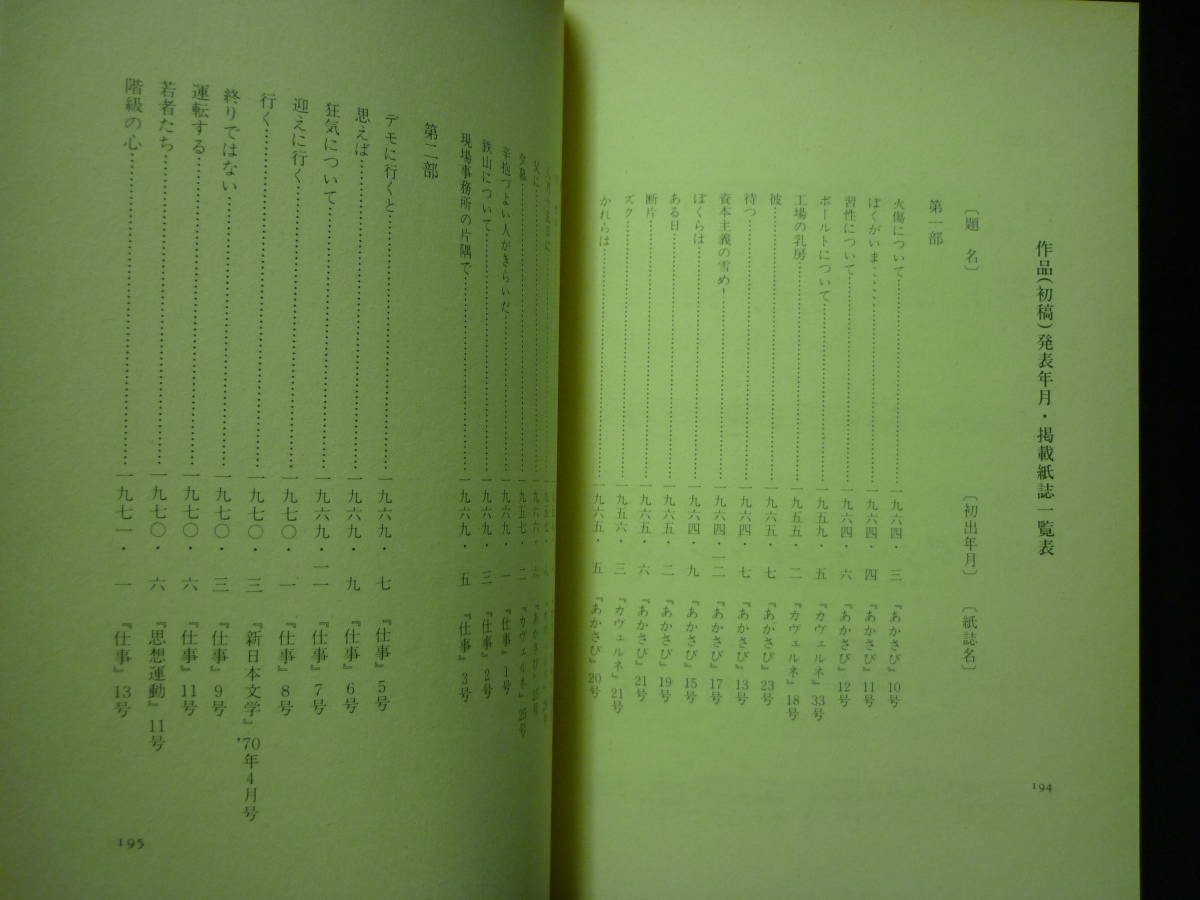 作品(初稿)発表年月・掲載紙誌一覧表
〔題 名〕 〔初出年月〕 〔紙誌名〕
第一部
火傷について…………一九六四・ 三 『あかさび』10号
ぼくがいま…………一九六四・ 四 『あかさび』11号
習性について…………一九六四・ 六 『あかさび』12号
ボールトについて…………一九五九・ 五 『カヴェルネ』33号
工場の乳房…………一九五五・ 二 『カヴェルネ』18号
彼…………一九六五・ 七 『あかさび』23号
待つ…………一九六四・ 七 『あかさび』13号
資本主義の雪め!…………一九六四・一二 『あかさび』17号
ぼくらは…………一九六四・ 九 『あかさび』15号
ある日…………一九六五・ 二 『あかさび』19号
断片…………一九六五・ 六 『あかさび』21号
ズク…………一九五六・ 三 『カヴェルネ』21号
かれらは…………一九六五・ 五 『あかさび』20号
194
父に…………一九六六・ 六 『あかさび』
夕暮…………一九五七・ 二 『カヴェルネ』25号
辛抱づよい人がきらいだ…………一九六九・ 一 『仕事』1号
鉄山について…………一九六九・ 三 『仕事』2号
現場事務所の片隅で…………一九六九・ 五 『仕事』3号
第二部
デモに行くと…………一九六九・ 七 『仕事』5号
思えば…………一九六九・ 九 『仕事』6号
狂気について…………一九六九・一一 『仕事』7号
迎えに行く…………一九七〇・ 一 『仕事』8号
行く…………一九七〇・ 三 『新日本文学』'70年4月号
終りではない…………一九七〇・ 三 『仕事』9号
運転する…………一九七〇・ 六 『仕事』11号
若者たち…………一九七〇・ 六 『思想運動』11号
階級の心…………一九七一・ 一 『仕事』13号
195